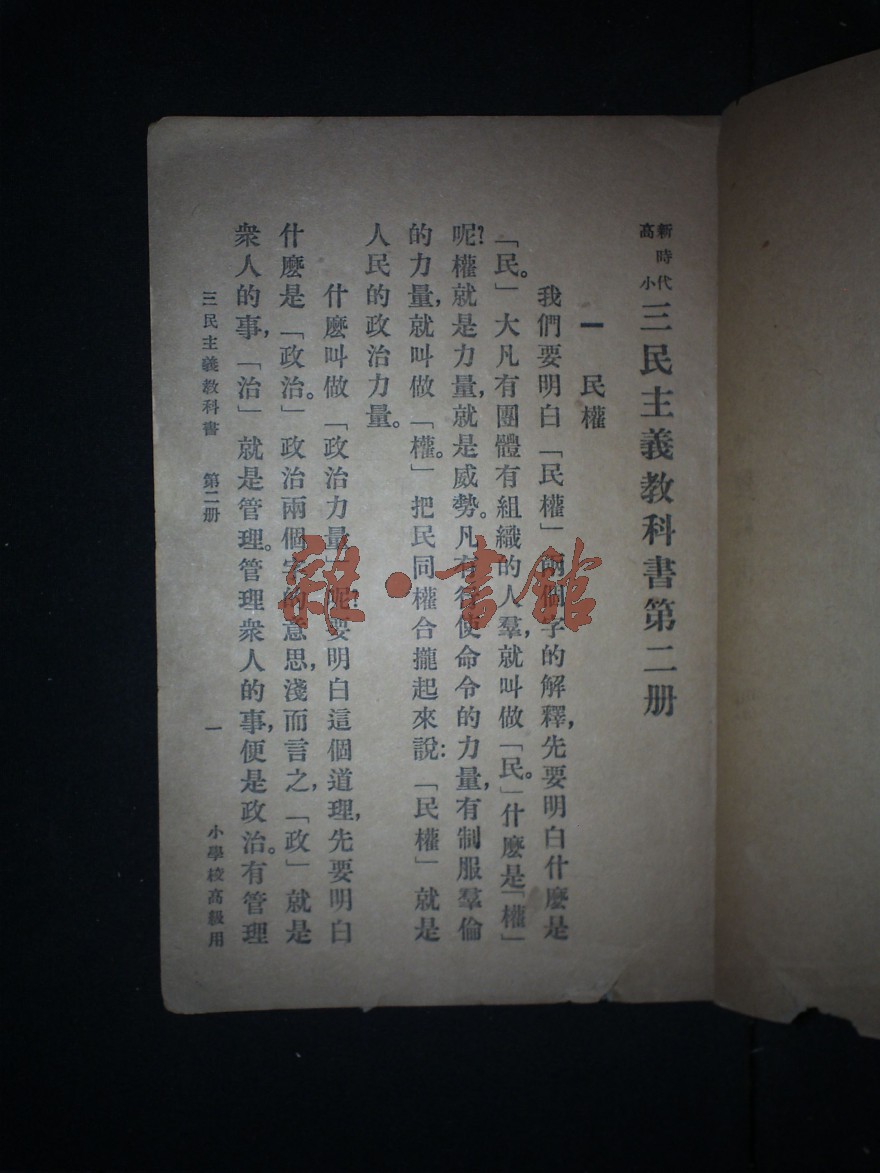 新時代高小 三民主義教科書第二册
一 民權
我們要明白「民權」兩個字的解釋，先要明白什麼是
「民。」大凡有團體有組織的人羣，就叫做「民。」什麼是「權」
呢？權就是力量，就是威勢。凡有行使命令的力量，有制服羣倫
的力量，就叫做「權。」把民同權合攏起來說：「民權」就是
人民的政治力量。
什麼叫做「政治力量」呢？要明白這個道理，先要明白
什麼是「政治。」政治兩個字的意思，淺而言之，「政」就是
衆人的事，「治」就是管理。管理衆人的事，便是政治。有管理
三民主義教科書 第二册 一 小學校高級用
雜·書館